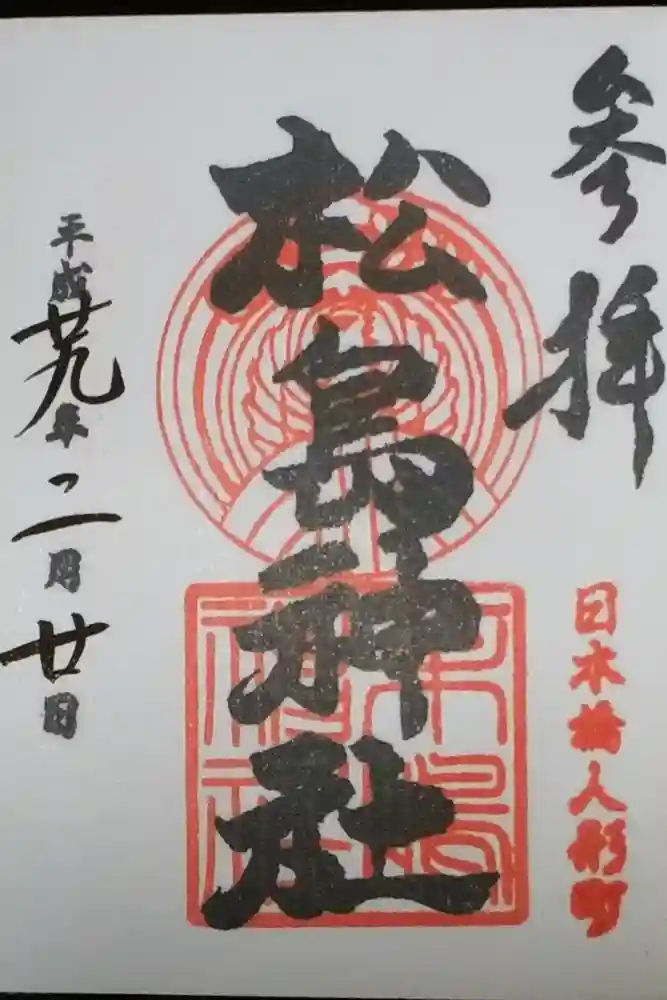 参拝
日本橋人形町
松島神社
平成廿九年二月廿日